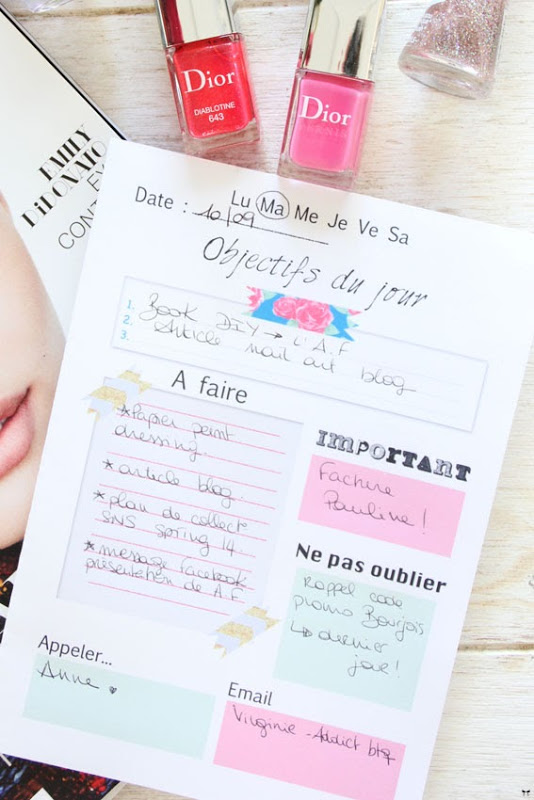 Dior
DIABLOTINE
643
Dior
VERNIS
EMILY
DiDONATO
EV
CONT
Lu Ma Me Je Ve Sa
Date : 10/09
Objectifs du jour
1. Book DIY → L'A.F
2. Article nail art blog
3.
A faire
*Papier peint
dressing.
*article blog.
*plan de collect
SNS spring 14.
*message facebook
présentation de A.F
IMPORTANT
Facture
Pauline!
Ne pas oublier
Rappel code
promo Bourjois
↳ dernier
jour!
Appeler...
Anne ♥
Email
Virginie - Addict blog